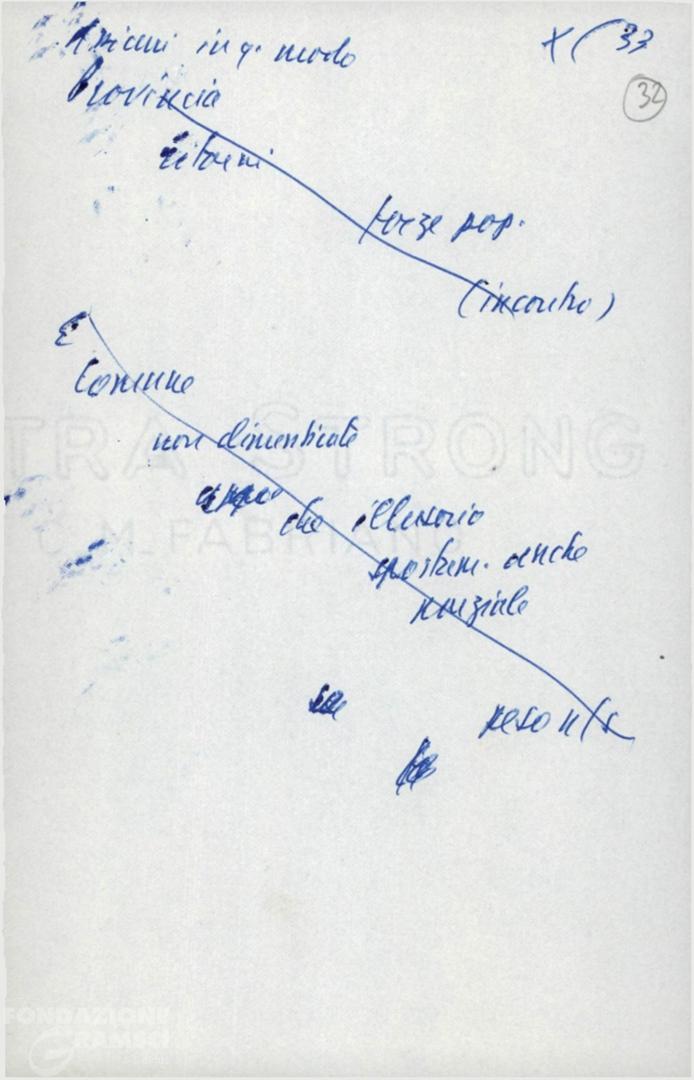 in q. modo
X ( 33
32
Provincia
forze pop.
(incontro)
E
Comune
non dimenticate
che illusorio
spostam. anche
parziale
peso n/s
TRA STRONG
C.M. FABRIANO
FONDAZIONE
GRAMSCI